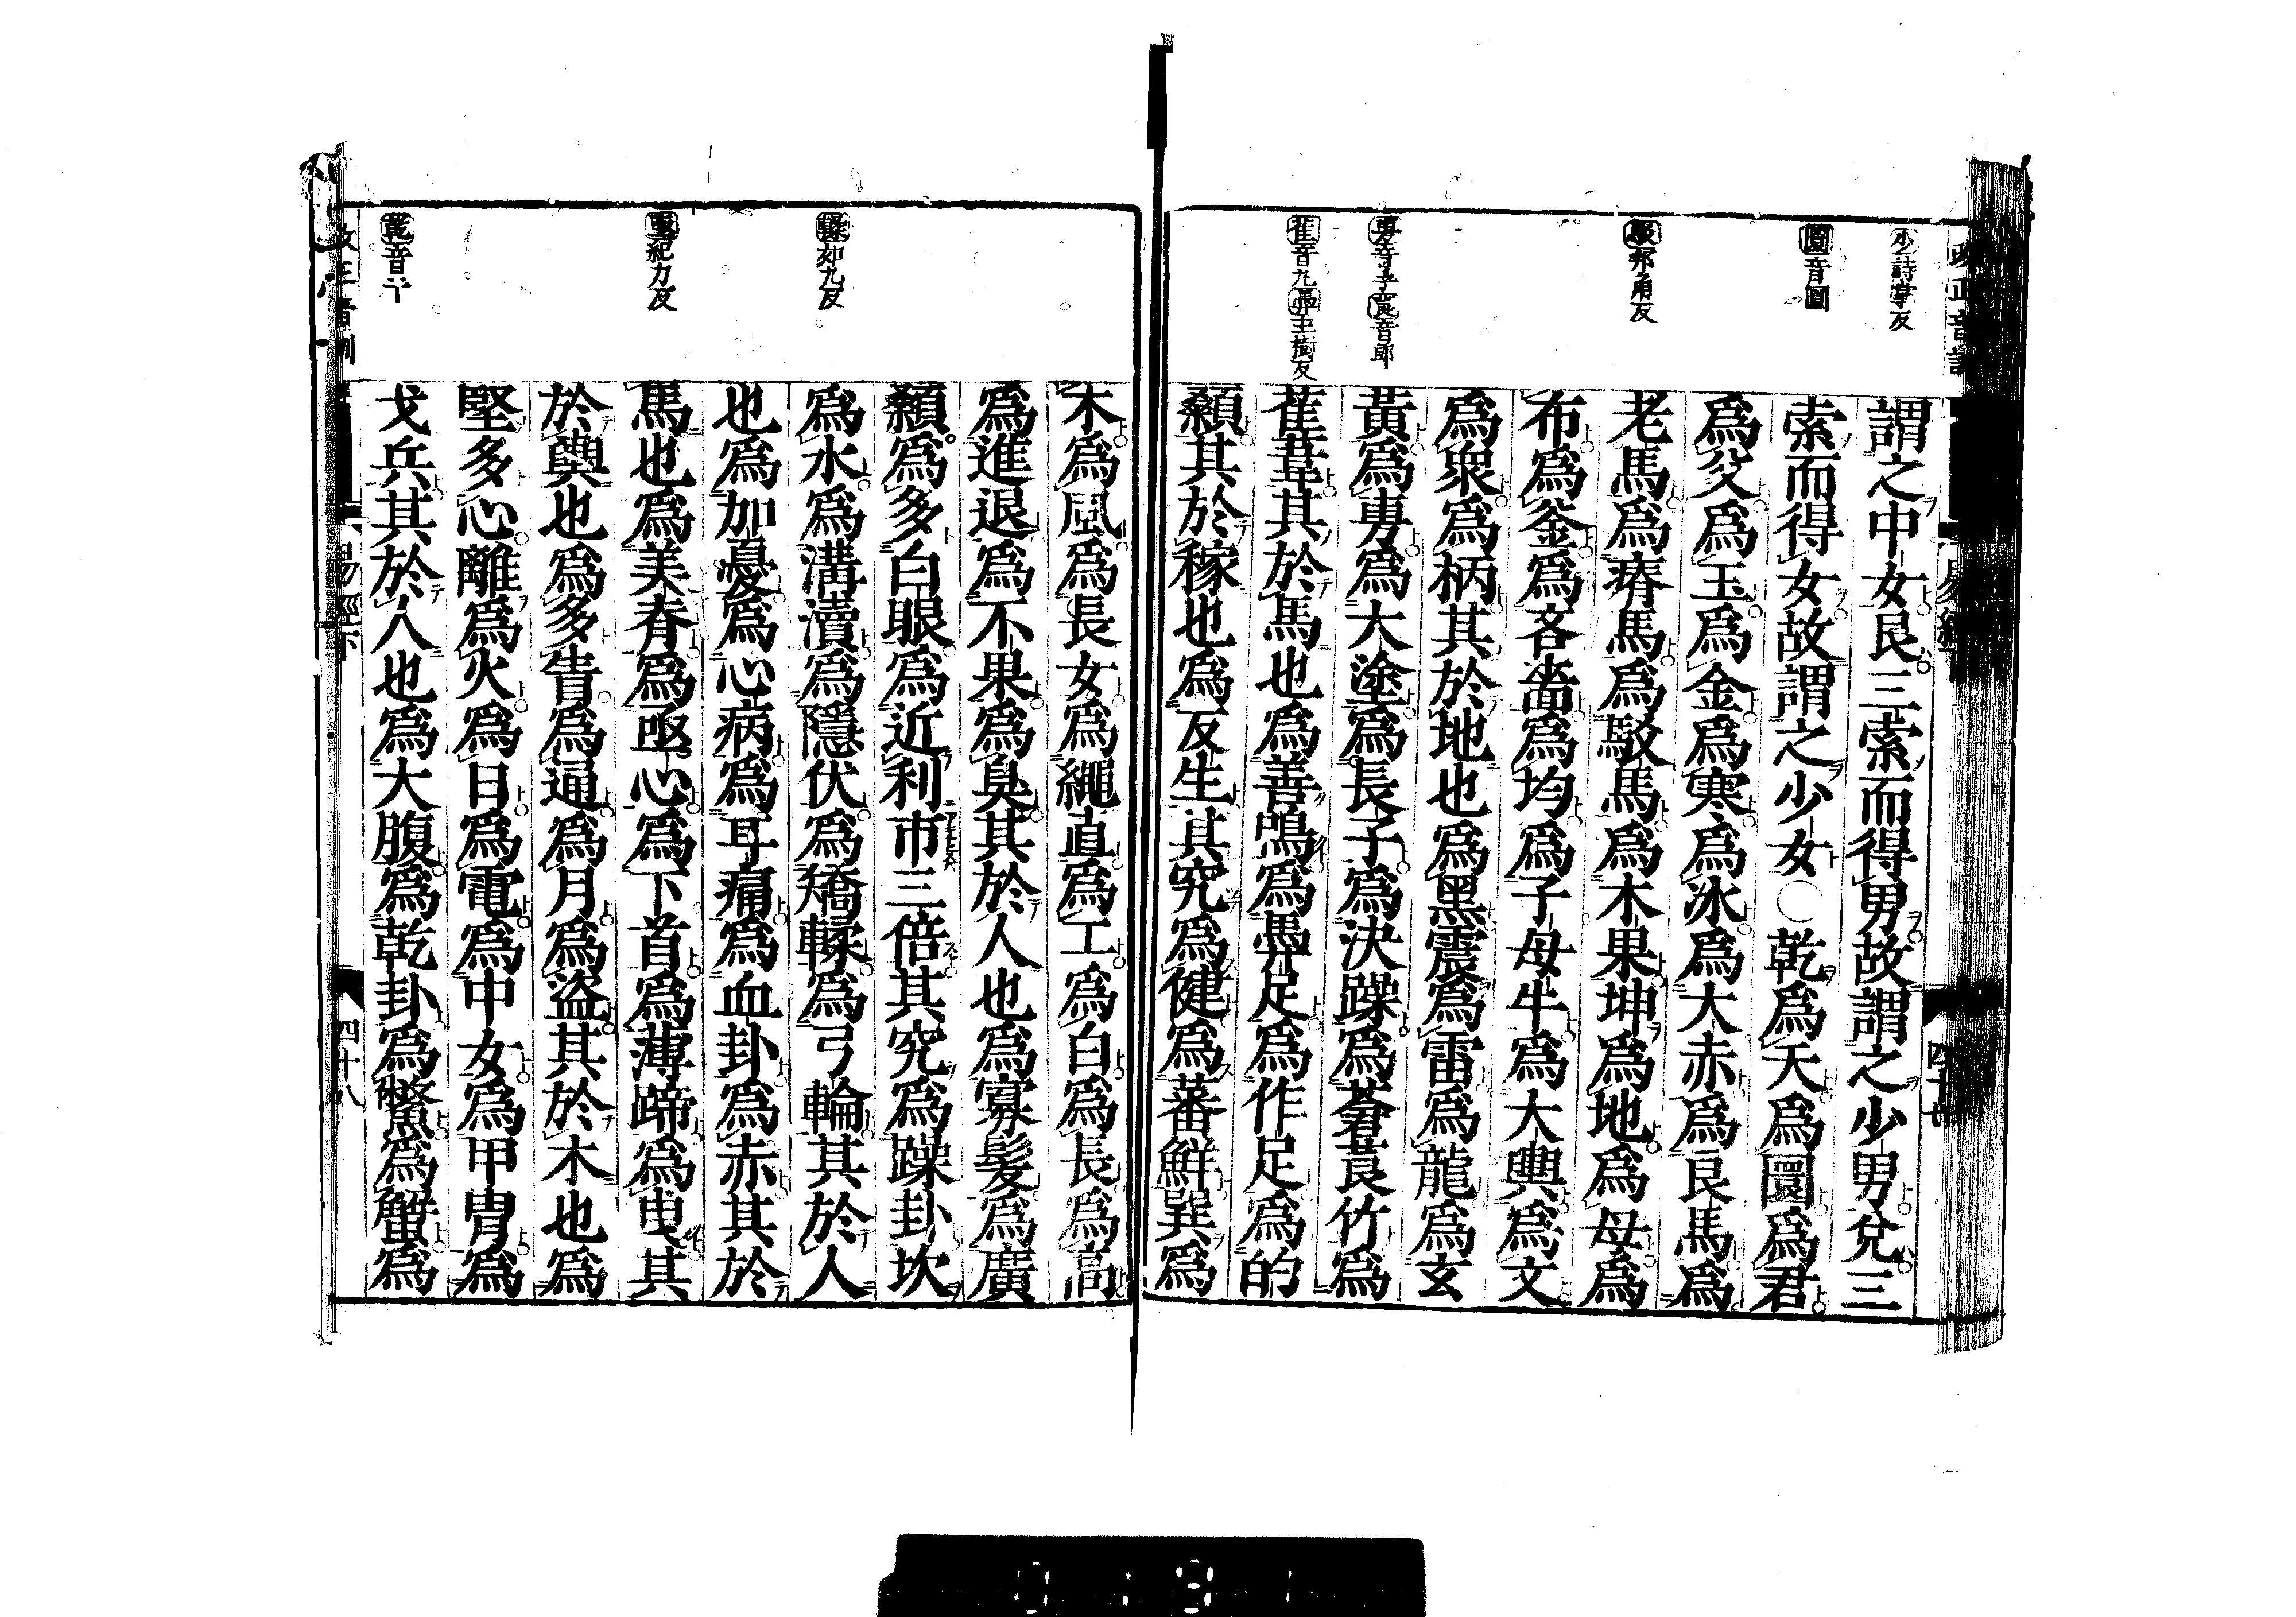 改正音訓
易經
四十七
少詩掌反
圜音圓
駁邦角反
旉音孚 筤音郎
萑音九 馵主樹反
謂之中女艮三索而得男故謂之少男兌三
索而得女故謂之少女○乾爲天爲圜爲君
爲父爲玉爲金爲寒爲冰爲大赤爲良馬爲
老馬爲瘠馬爲駁馬爲木果坤爲地爲母爲
布爲釜爲吝嗇爲均爲子母牛爲大輿爲文
爲衆爲柄其於地也爲黑震爲雷爲龍爲玄
黃爲旉爲大塗爲長子爲決躁爲蒼筤竹爲
萑葦其於馬也爲善鳴爲馵足爲作足爲的
顙其於稼也爲反生其究爲健爲蕃鮮巽爲
輮如九反
亟紀力反
乾音干
木爲風爲長女爲繩直爲工爲白爲長爲高
爲進退爲不果爲臭其於人也爲寡髮爲廣
顙爲多白眼爲近利市三倍其究爲躁卦坎
爲水爲溝瀆爲隱伏爲矯輮爲弓輪其於人
也爲加憂爲心病爲耳痛爲血卦爲赤其於
馬也爲美脊爲亟心爲下首爲薄蹄爲曳其
於輿也爲多眚爲通爲月爲盜其於木也爲
堅多心離爲火爲日爲電爲中女爲甲冑爲
戈兵其於人也爲大腹爲乾卦爲鱉爲蟹爲
改正音訓
易經下
四十八